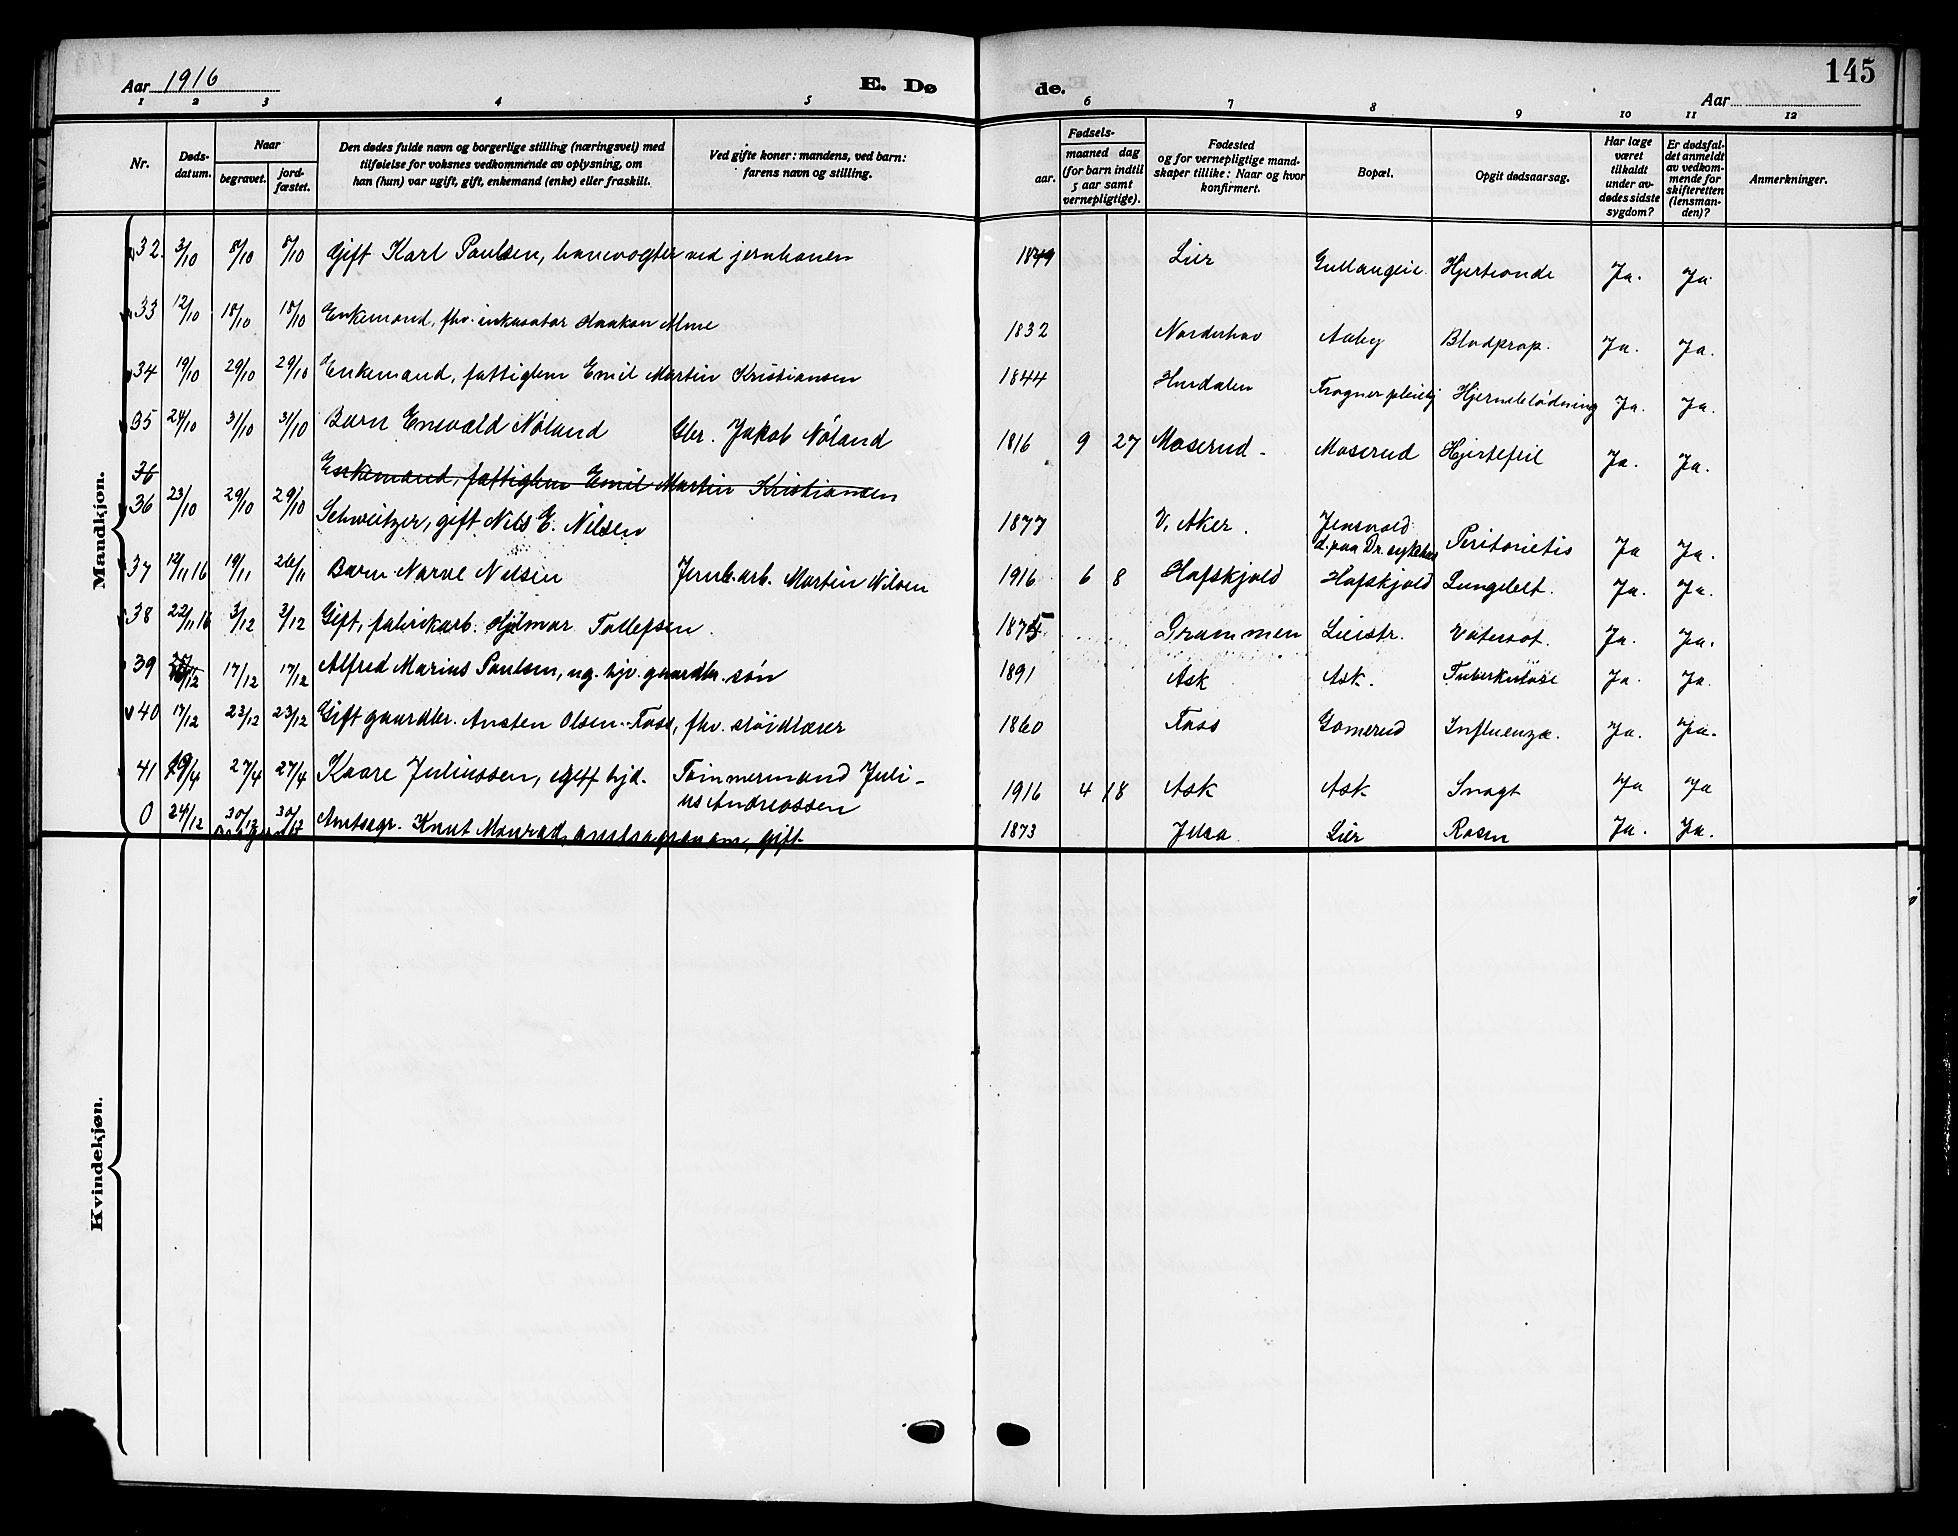 145
Aar 1916
E. Dø
de.
Aar
1 2 3 4 5 6 7 8 9 10 11 12
Nr.
Døds-
datum.
Naar
begravet.
jord-
fæstet.
Den dødes fulde navn og borgerlige stilling (næringsvei) med
tilføielse for voksnes vedkommende av oplysning, om
han (hun) var ugift, gift, enkemand (enke) eller fraskilt.
Ved gifte koner: mandens, ved barn:
farens navn og stilling.
Fødsels-
aar.
maaned dag
(for barn indtil
5 aar samt
vernepligtige).
Fødested
og for vernepligtige mand-
skaper tillike: Naar og hvor
konfirmert.
Bopæl.
Opgit dødsaarsag.
Har læge
været
tilkaldt
under av-
dødes sidste
sygdom?
Er dødsfal-
det anmeldt
av vedkom-
mende for
skifteretten
(lensman-
den)?
Anmerkninger.
Mandkjøn.
32. 3/10 8/10 8/10 Gift Karl Paulsen, banevogter ved jernbanen 1849 Lier Hjerteonde Ja. Ja
33 12/10 18/10 18/10 Enkemand, fhv. inkasator Haakon Alme 1832 Norderhov Aaby Blodprop. Ja. Ja.
34 19/10 29/10 29/10 Enkemand, fattiglem Emil Martin Kristiansen 1844 Hurdalen Frogner pleiehj Hjerneblødning Ja. Ja.
35 24/10 31/10 31/10 Barn Enevald Nøland Gbr. Jakob Nøland 1816 9 27 Moserud - Moserud Hjertefeil Ja. Ja.
36 Enkemand, fattiglem Emil Martin Kristiansen
36 23/10 29/10 29/10 Schweitzer, gift Nils E. Nilsen 1877 V. Aker. Jensvold
d. paa Dr. sykehus Peritonietis Ja Ja.
37 12/11 16 19/11 26/11 Barn Narve Nilsen Jernb.arb. Martin Nilsen 1916 6 8 Hafskjold Hafskjold Lungebet. Ja. Ja.
38 22/11 16 3/12 3/12 Gift, fabrikarb. Hjalmar Tollefsen. 1875 Drammen Lierstr. Vatersot. Ja. Ja.
39 17/12 17/12 Alfred Marius Paulsen, ug. hjv. gaardbr. søn 1891 Ask Ask. Tuberkulose Ja. Ja.
40 17/12 23/12 23/12 Gift gaardbr. Ansten Olsen-Foss, fhv. sløidlærer 1860 Foss Gomerud Influenza. Ja. Ja.
41 19/4 27/4 27/4 Kaare Juliussen, hjd. Tømmermand Juli-
us Andreassen 1916 4 18 Ask Ask Ja Ja
0 24/12 30/12 30/12 Amtsagr. Knut Monrad, amtsagronom, gift 1873 Lier Rosen Ja. Ja.
Kvindekjøn.